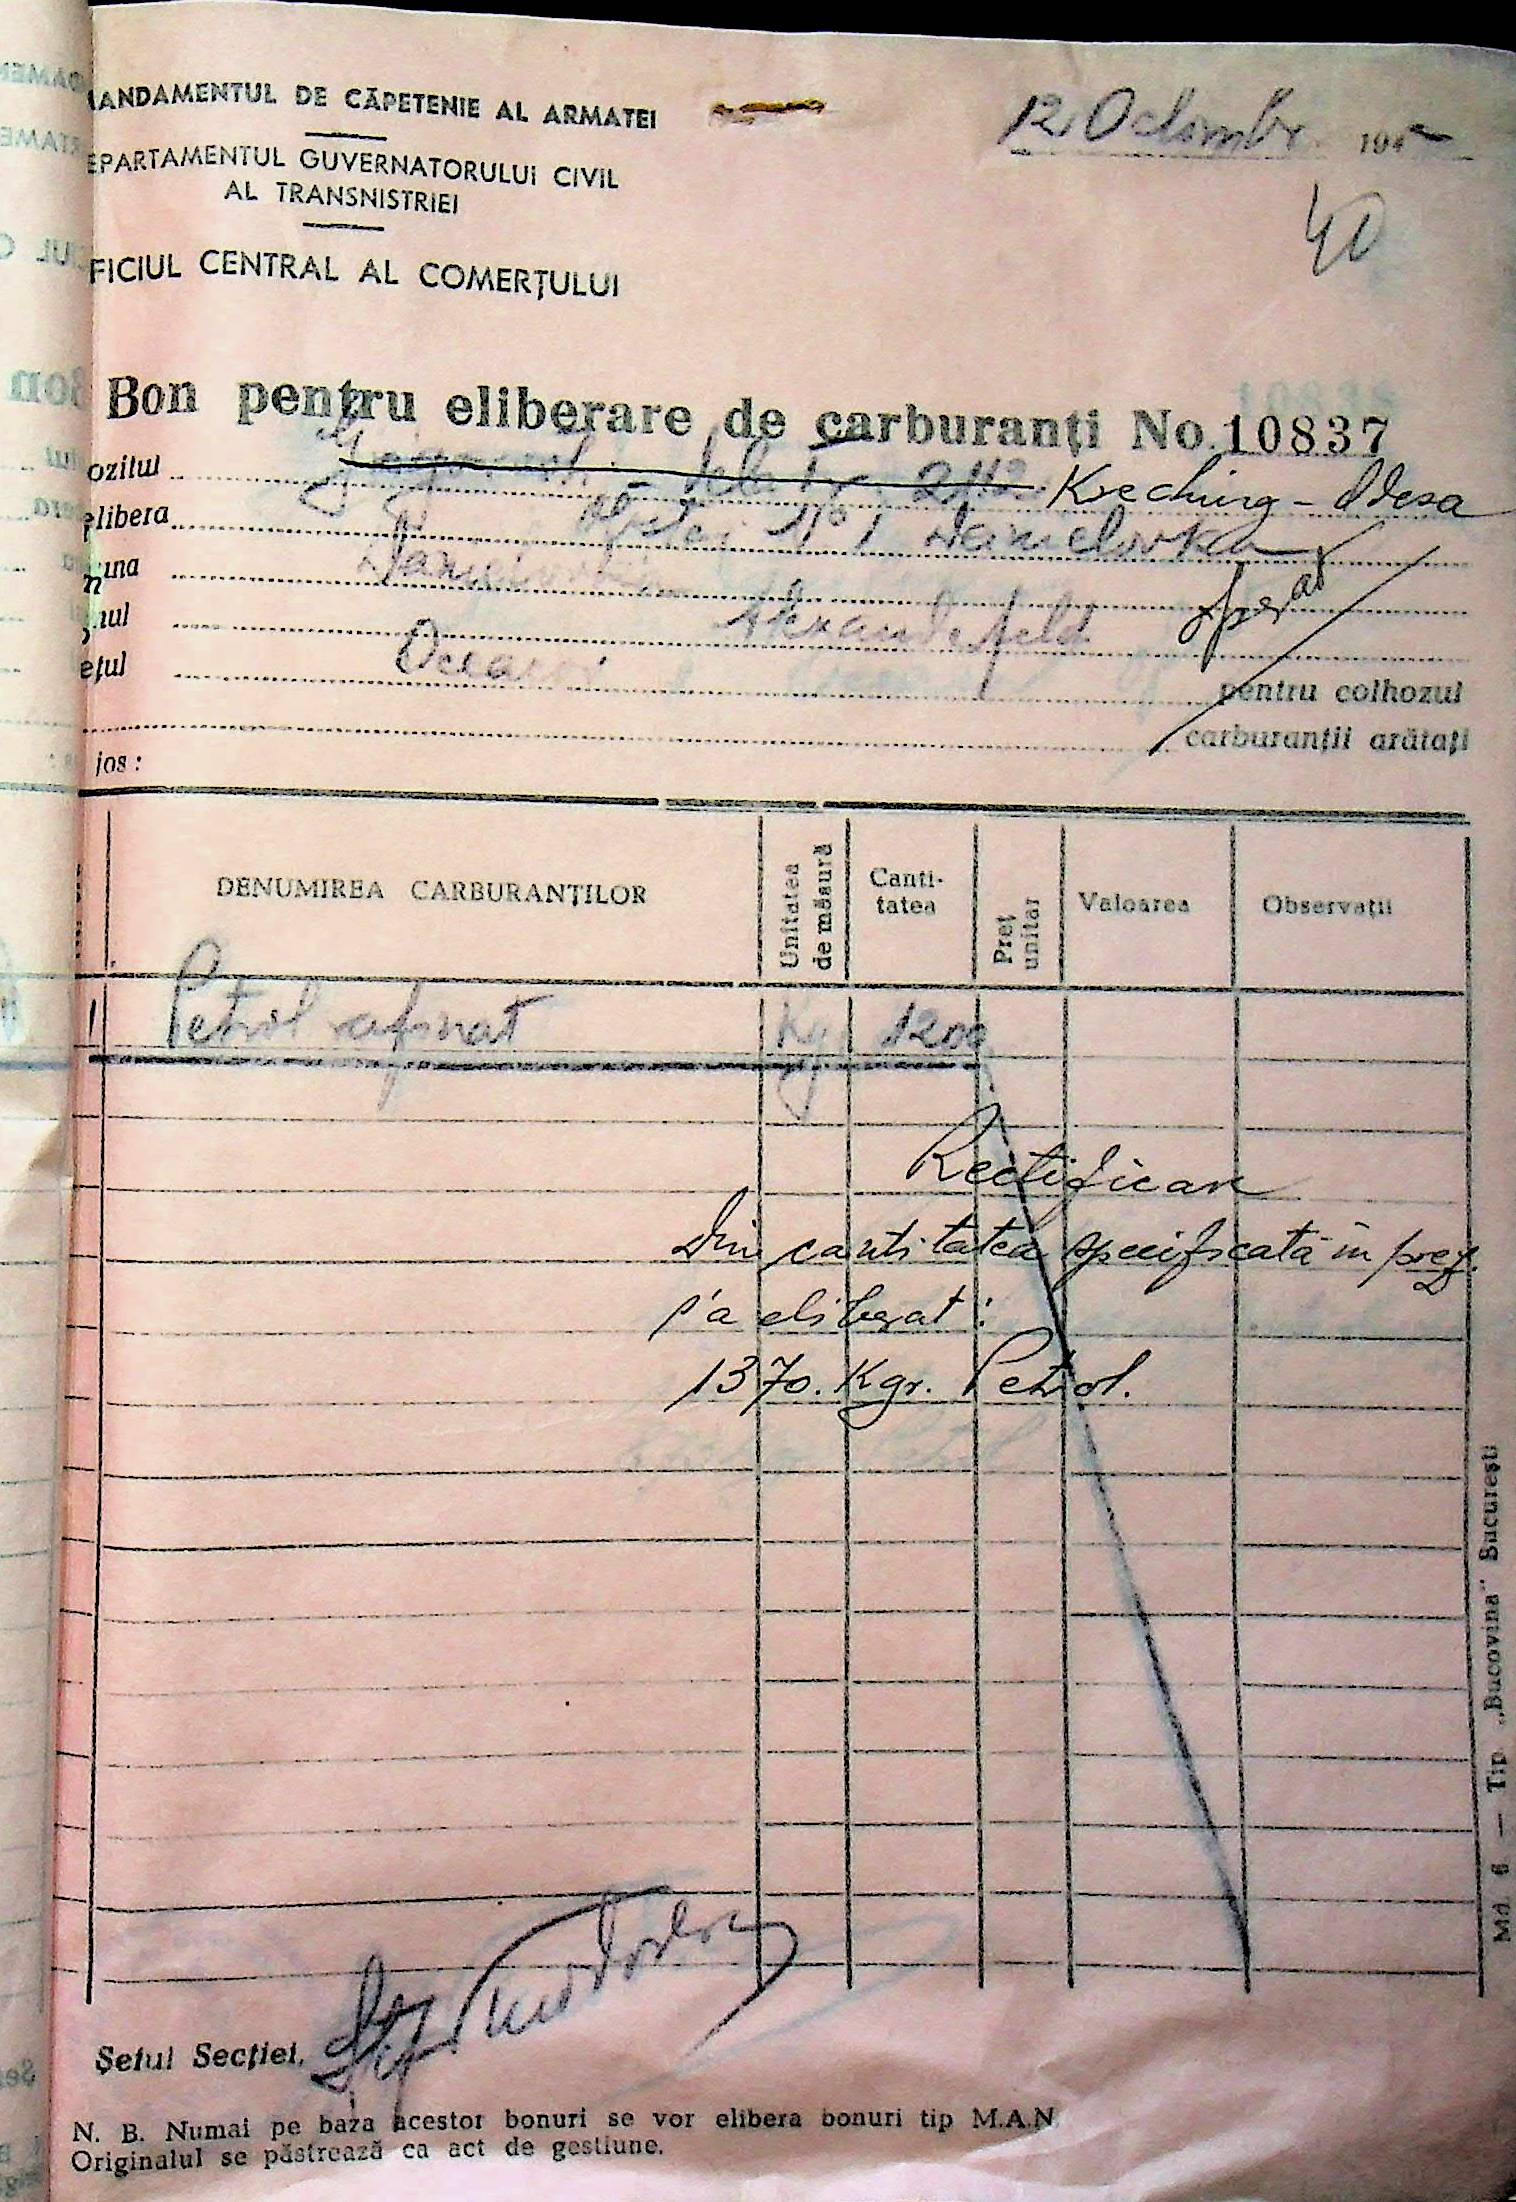 MANDAMENTUL DE CĂPETENIE AL ARMATEI
12 Octombr. 194
EPARTAMENTUL GUVERNATORULUI CIVIL
AL TRANSNISTRIEI
40
FICIUL CENTRAL AL COMERȚULUI
Bon pentru eliberare de carburanți No. 10837
ozitul Kreching - Odesa
elibera No 1
una
nul
ețul Oceacov
pentru colhozul
carburanții arătați
jos :
DENUMIREA CARBURANȚILOR Unitatea de măsură Canti-tatea Preț unitar Valoarea Observații
1 Petrol rafinat Kg 1200
Rectificare
Din cantitatea specificată in prez.
s'a eliberat :
1370. Kgr. Petrol.
Șeful Secției,
N. B. Numai pe baza acestor bonuri se vor elibera bonuri tip M.A.N
Originalul se păstrează ca act de gestiune.
Md. 6 — Tip. „Bucovina" București